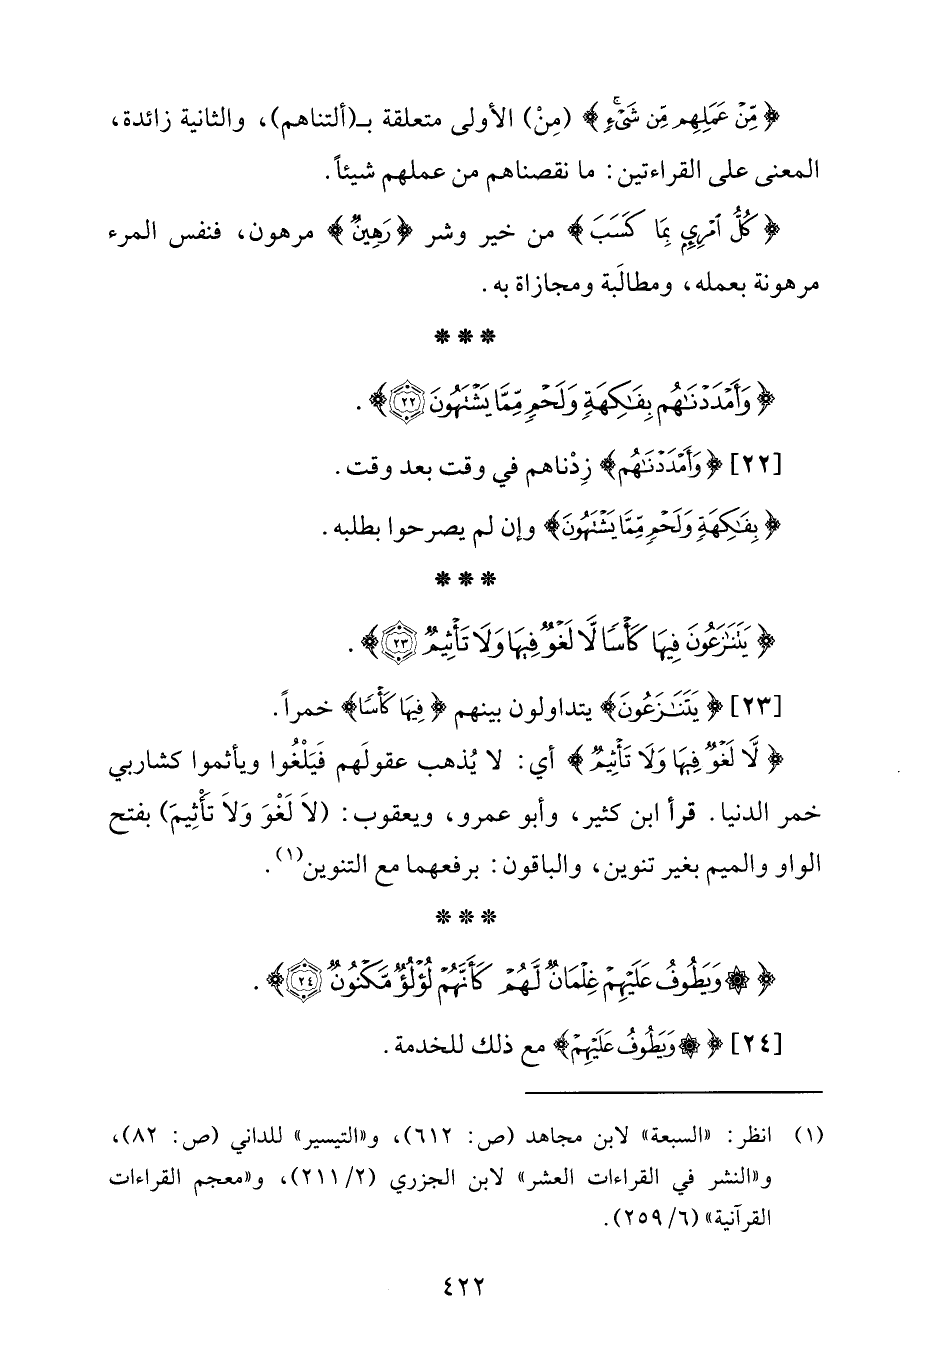 ﴿مِّنْ عَمَلِهِم مِّن شَيْءٍ﴾ (مِنْ) الأولى متعلقة بـ(ألتناهم)، والثانية زائدة،
المعنى على القراءتين: ما نقصناهم من عملهم شيئاً.
﴿كُلُّ ٱمْرِيٍٕ بِمَا كَسَبَ﴾ من خير وشر ﴿رَهِينٌ﴾ مرهون، فنفس المرء
مرهونة بعمله، ومطالَبة ومجازاة به.
***
﴿وَأَمْدَدْنَٰهُم بِفَٰكِهَةٍ وَلَحْمٍ مِّمَّا يَشْتَهُونَ ٢٢﴾.
[٢٢] ﴿وَأَمْدَدْنَٰهُم﴾ زِدْناهم في وقت بعد وقت.
﴿بِفَٰكِهَةٍ وَلَحْمٍ مِّمَّا يَشْتَهُونَ﴾ وإن لم يصرحوا بطلبه.
***
﴿يَتَنَٰزَعُونَ فِيهَا كَأْسًا لَّا لَغْوٌ فِيهَا وَلَا تَأْثِيمٌ ٢٣﴾.
[٢٣] ﴿يَتَنَٰزَعُونَ﴾ يتداولون بينهم ﴿فِيهَا كَأْسًا﴾ خمراً.
﴿لَّا لَغْوٌ فِيهَا وَلَا تَأْثِيمٌ﴾ أي: لا يُذهب عقولَهم فَيَلْغُوا ويأثموا كشاربي
خمر الدنيا. قرأ ابن كثير، وأبو عمرو، ويعقوب: (لاَ لَغْوَ وَلاَ تَأْثِيمَ) بفتح
الواو والميم بغير تنوين، والباقون: برفعهما مع التنوين(١).
***
﴿۞ وَيَطُوفُ عَلَيْهِمْ غِلْمَانٌ لَّهُمْ كَأَنَّهُمْ لُؤْلُؤٌ مَّكْنُونٌ ٢٤﴾.
[٢٤] ﴿۞ وَيَطُوفُ عَلَيْهِمْ﴾ مع ذلك للخدمة.
(١) انظر: «السبعة» لابن مجاهد (ص: ٦١٢)، و«التيسير» للداني (ص: ٨٢)،
و«النشر في القراءات العشر» لابن الجزري (٢/ ٢١١)، و«معجم القراءات
القرآنية» (٦/ ٢٥٩).
٤٢٢